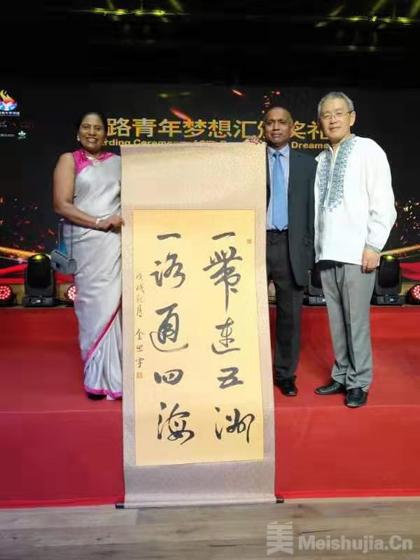 路青年梦想汇颁奖礼
arding Ceremony
Dream
一帶連五洲
一路通四海
戊戌
美 Meishujia.Cn